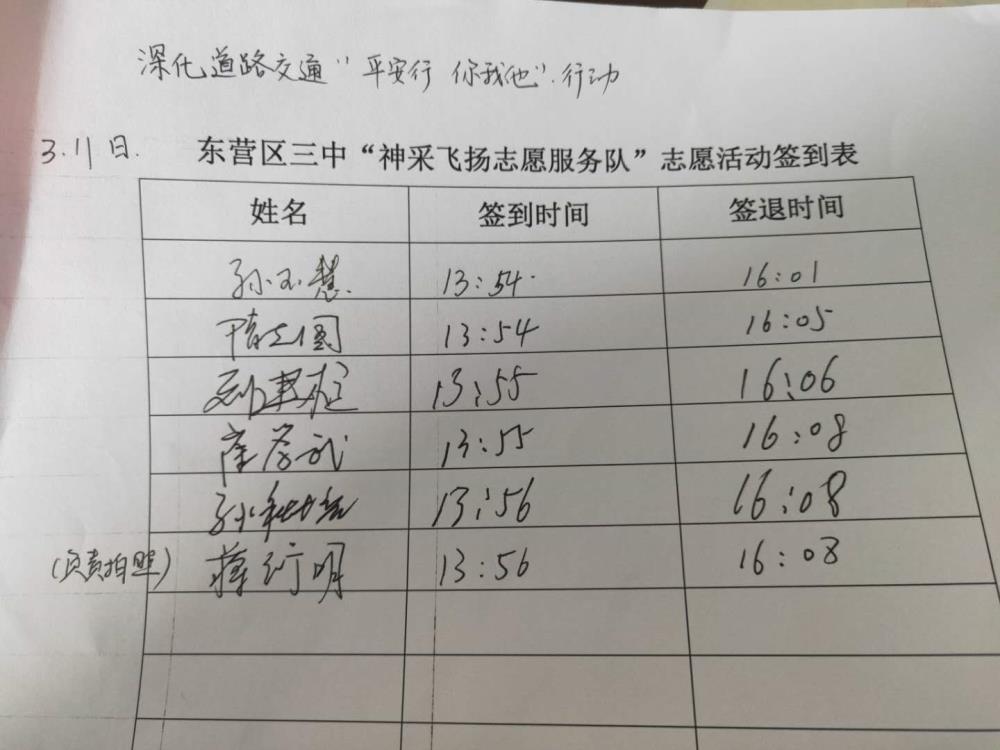 深化道路交通"平安行 你我他".行动
3.11日.
东营区三中“神采飞扬志愿服务队”志愿活动签到表
姓名 签到时间 签退时间
孙玉慧 13:54 16:01
13:54 16:05
13:55 16:06
13:55 16:08
13:56 16:08
(负责拍照) 13:56 16:08